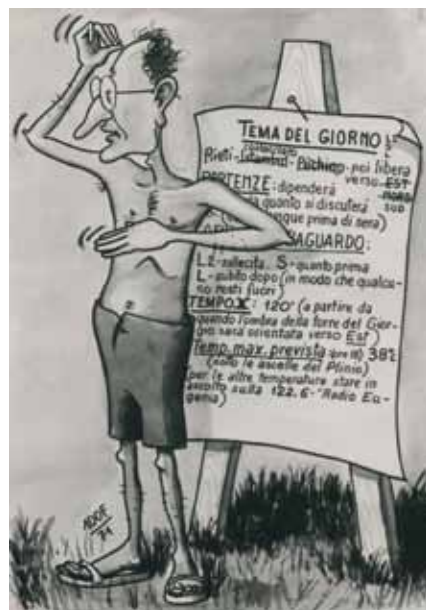 TEMA DEL GIORNO
Rieti-Istambul-Pachino-poi libera
verso EST
NORD
SUD
PARTENZE: dipenderà
quanto si discuterà
prima di sera)
AGUARDO:
LZ-sollecita. S-quanto prima
L-subito dopo (in modo che qualcu-
no resti fuori)
TEMPO X: 120' (a partire da
quando l'ombra della torre del Gior-
gio sarà orientata verso Est)
Temp. max. prevista (ore 15) 38°
(sotto le ascelle del Plinio)
per le altre temperature stare in
ascolto sulla 122,6-"Radio Eu-
genia)
ADOE
71